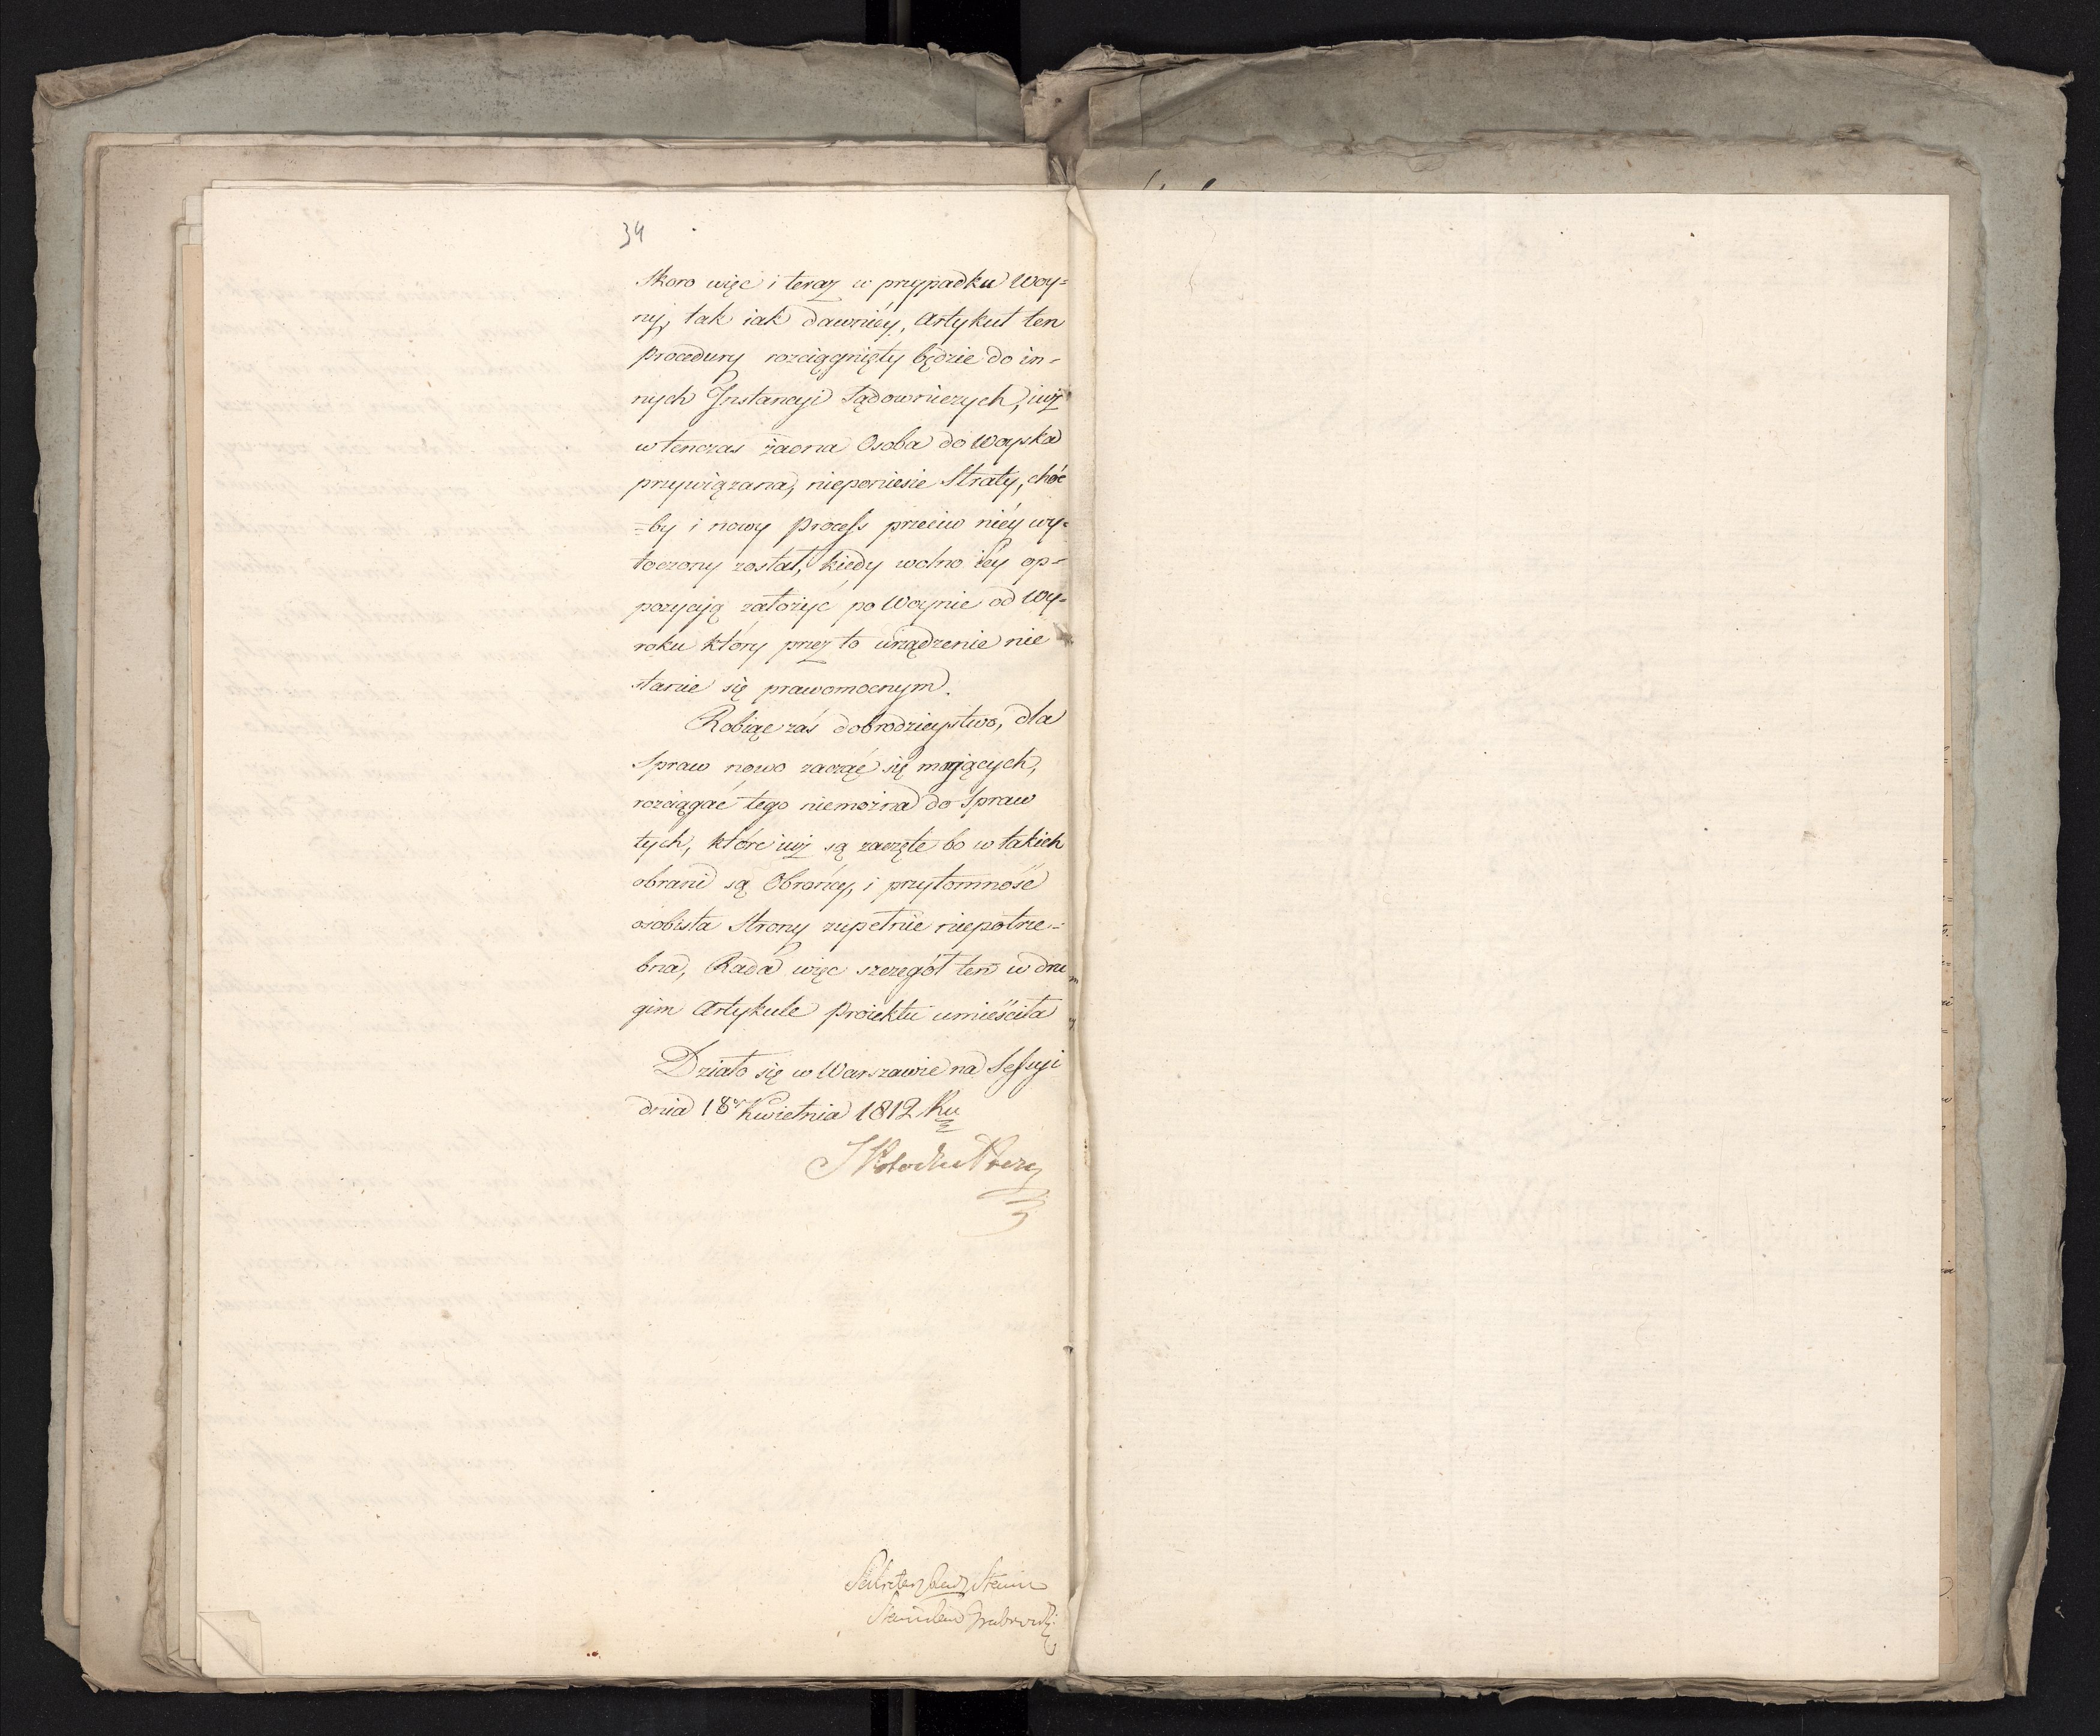 34
Skoro więc i teraz w przypadku Woy=
ny, tak iak dawniéy, Artykuł ten
procedury rozciągnięty będzie do in=
nych Instancyi Sądowniczych, iuż
wtenczas żadna Osoba do Woyska
przywiązana, nieponiesie Straty, choć
=by i nowy process przeciw niéy wy=
toczony został, kiedy wolno iéy op=
pozycyą założyć po Woynie od Wy=
roku który przez to urządzenie nie
stanie się prawomocnym.
Robiąc zaś dobrodzieystwo, dla
Spraw nowo zacząć się maiących,
rozciągać tego niemożna do Spraw
tych, które iuż są zaczęte bo w takich
obrani są Obrońcy, i przytomność
osobista Strony zupełnie niepotrze=
bna, Rada więc szczegół ten w dru
gim Artykule Proiektu umieściła
Działo się w Warszawie na Sessyi
dnia 18 Kwietnia 1812 Ku
Sekretarz Rady Stanu
Stanisław Grabowski